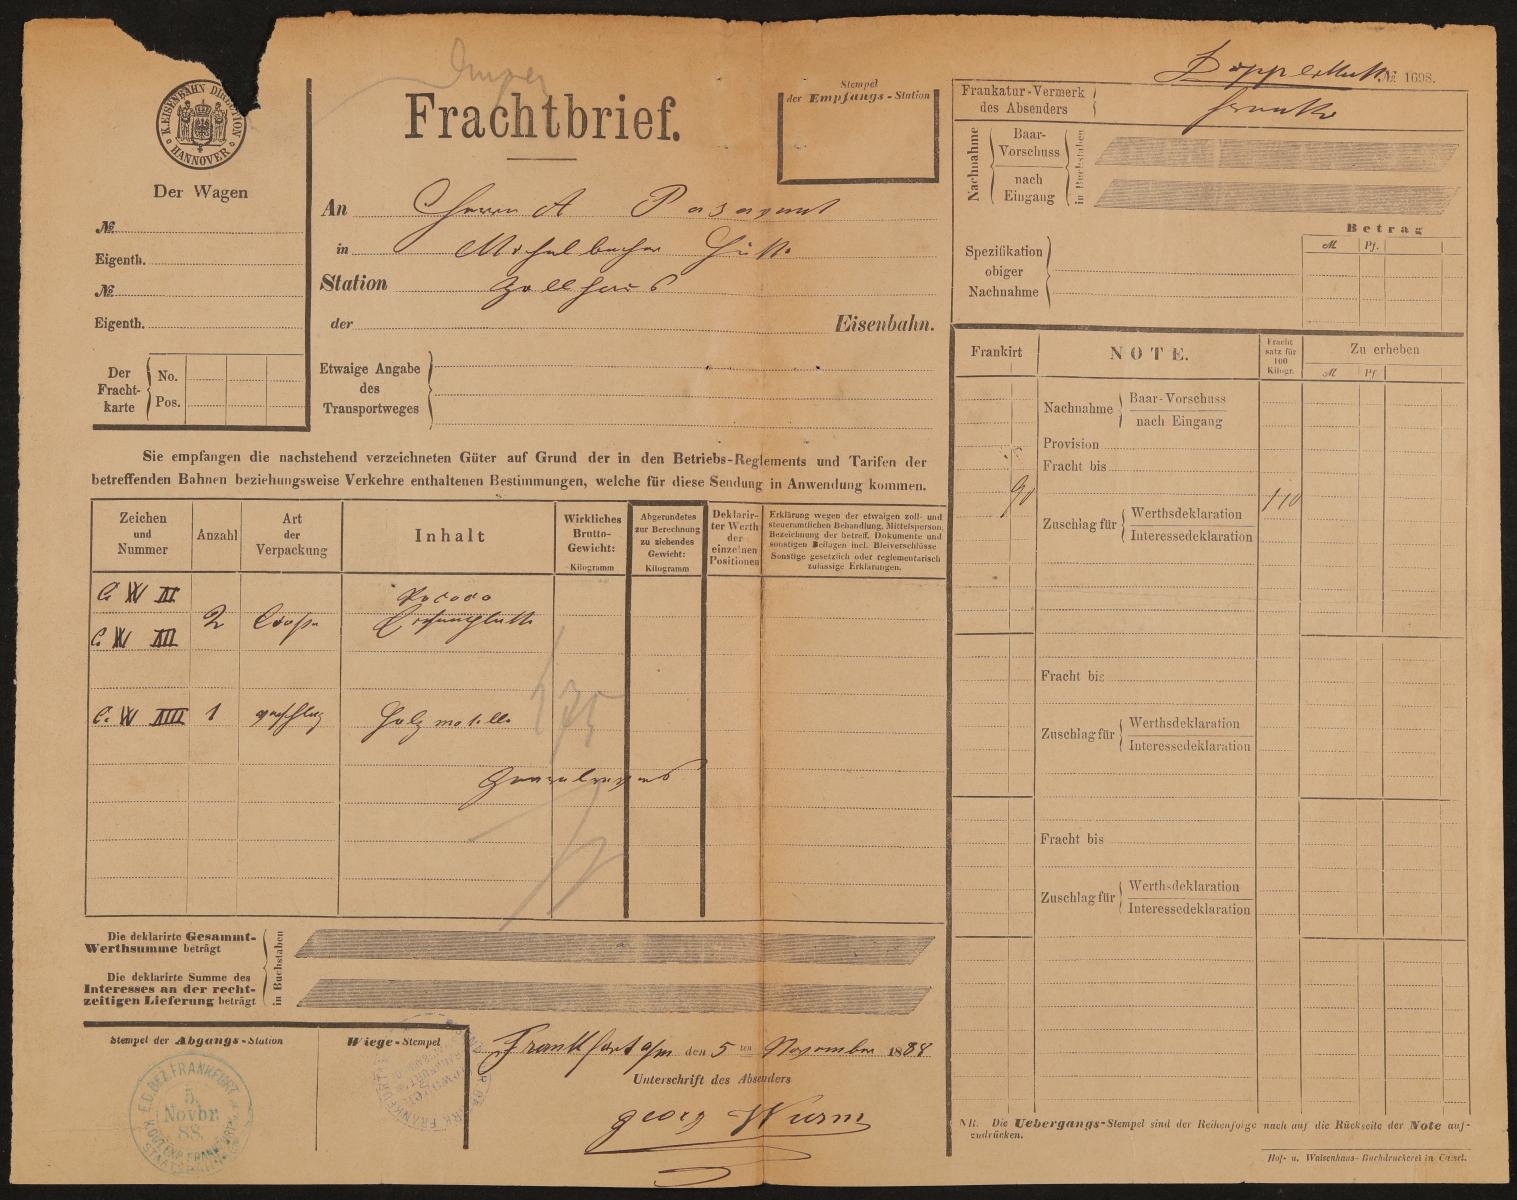 K. EISENBAHN DIRECTION HANNOVER
Frachtbrief.
Der Wagen
№
Eigenth.
№
Eigenth.
Der Frachtkarte
No.
Pos.
Stempel
der Empfangs-Station
An Herrn A Passavant
in Michelbacher Hütte
Station Zollhaus
der Eisenbahn.
Etwaige Angabe
des
Transportweges
Sie empfangen die nachstehend verzeichneten Güter auf Grund der in den Betriebs-Reglements und Tarifen der
betreffenden Bahnen beziehungsweise Verkehre enthaltenen Bestimmungen, welche für diese Sendung in Anwendung kommen.
Zeichen
und
Nummer
Anzahl
Art
der
Verpackung
Inhalt
Wirkliches
Brutto-
Gewicht:
Kilogramm
Abgerundetes
zur Berechnung
zu ziehendes
Gewicht:
Kilogramm
Deklarir-
ter Werth
der
einzelnen
Positionen
Erklärung wegen der etwaigen zoll- und
steueramtlichen Behandlung, Mittelsperson,
Bezeichnung der betreff. Dokumente und
sonstigen Beilagen incl. Bleiverschlüsse
Sonstige gesetzlich oder reglementarisch
zulässige Erklärungen.
2
1 Holzmodelle
175
Die deklarirte Gesammt-
Werthsumme beträgt
Die deklarirte Summe des
Interesses an der recht-
zeitigen Lieferung beträgt
in Buchstaben
Stempel der Abgangs-Station
Wiege-Stempel
E.D.BEZ.FRANKFURT
5.
Novbr.
88.
Frankfurt a/m den 5 ten November 1888
Unterschrift des Absenders
Georg Wurm
№ 1698.
Frankatur-Vermerk
des Absenders
franko
Nachnahme
Baar-
Vorschuss
nach
Eingang
in Buchstaben
Betrag
M Pf.
Spezifikation
obiger
Nachnahme
Frankirt
NOTE.
Fracht
satz für
100
Kilogr.
Zu erheben
M Pf
Nachnahme
Baar-Vorschuss
nach Eingang
Provision
Fracht bis
90
110
Zuschlag für
Werthsdeklaration
Interessedeklaration
Fracht bis
Zuschlag für
Werthsdeklaration
Interessedeklaration
Fracht bis
Zuschlag für
Werthsdeklaration
Interessedeklaration
NB. Die Uebergangs-Stempel sind der Reihenfolge nach auf die Rückseite der Note auf-
zudrücken.
Hof- u. Waisenhaus-Buchdruckerei in Cassel.